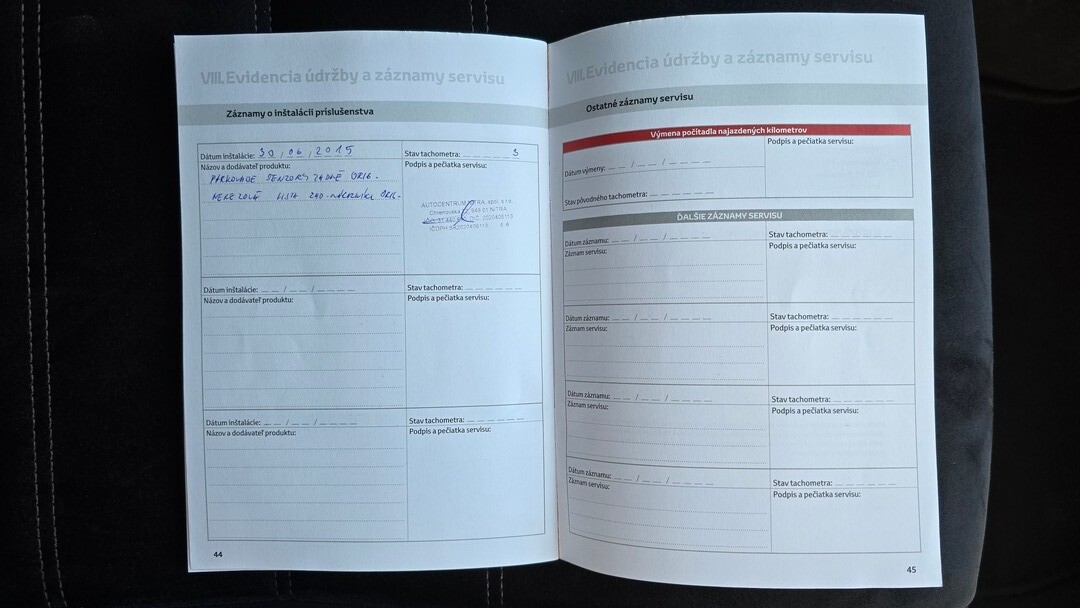 VIII. Evidencia údržby a záznamy servisu
Záznamy o inštalácii príslušenstva
Dátum inštalácie: 30 / 06 / 2015
Stav tachometra: _ _ _ _ _ 5
Názov a dodávateľ produktu:
Podpis a pečiatka servisu:
PARKOVACIE SENZORY ZADNÉ ORIG.
NEREZOVÁ LIŠTA ZAD. nárazníka ORIG.
AUTOCENTRUM NITRA, spol. s r.o.
949 01 NITRA
Dátum inštalácie: _ _ / _ _ / _ _ _ _
Stav tachometra: _ _ _ _ _ _
Názov a dodávateľ produktu:
Podpis a pečiatka servisu:
Dátum inštalácie: _ _ / _ _ / _ _ _ _
Stav tachometra: _ _ _ _ _ _
Názov a dodávateľ produktu:
Podpis a pečiatka servisu:
44
VIII. Evidencia údržby a záznamy servisu
Ostatné záznamy servisu
Výmena počítadla najazdených kilometrov
Dátum výmeny: _ _ / _ _ / _ _ _ _
Podpis a pečiatka servisu:
Stav pôvodného tachometra: _ _ _ _ _ _
ĎALŠIE ZÁZNAMY SERVISU
Dátum záznamu: _ _ / _ _ / _ _ _ _
Stav tachometra: _ _ _ _ _ _
Záznam servisu:
Podpis a pečiatka servisu:
Dátum záznamu: _ _ / _ _ / _ _ _ _
Stav tachometra: _ _ _ _ _ _
Záznam servisu:
Podpis a pečiatka servisu:
Dátum záznamu: _ _ / _ _ / _ _ _ _
Stav tachometra: _ _ _ _ _ _
Záznam servisu:
Podpis a pečiatka servisu:
Dátum záznamu: _ _ / _ _ / _ _ _ _
Stav tachometra: _ _ _ _ _ _
Záznam servisu:
Podpis a pečiatka servisu:
45